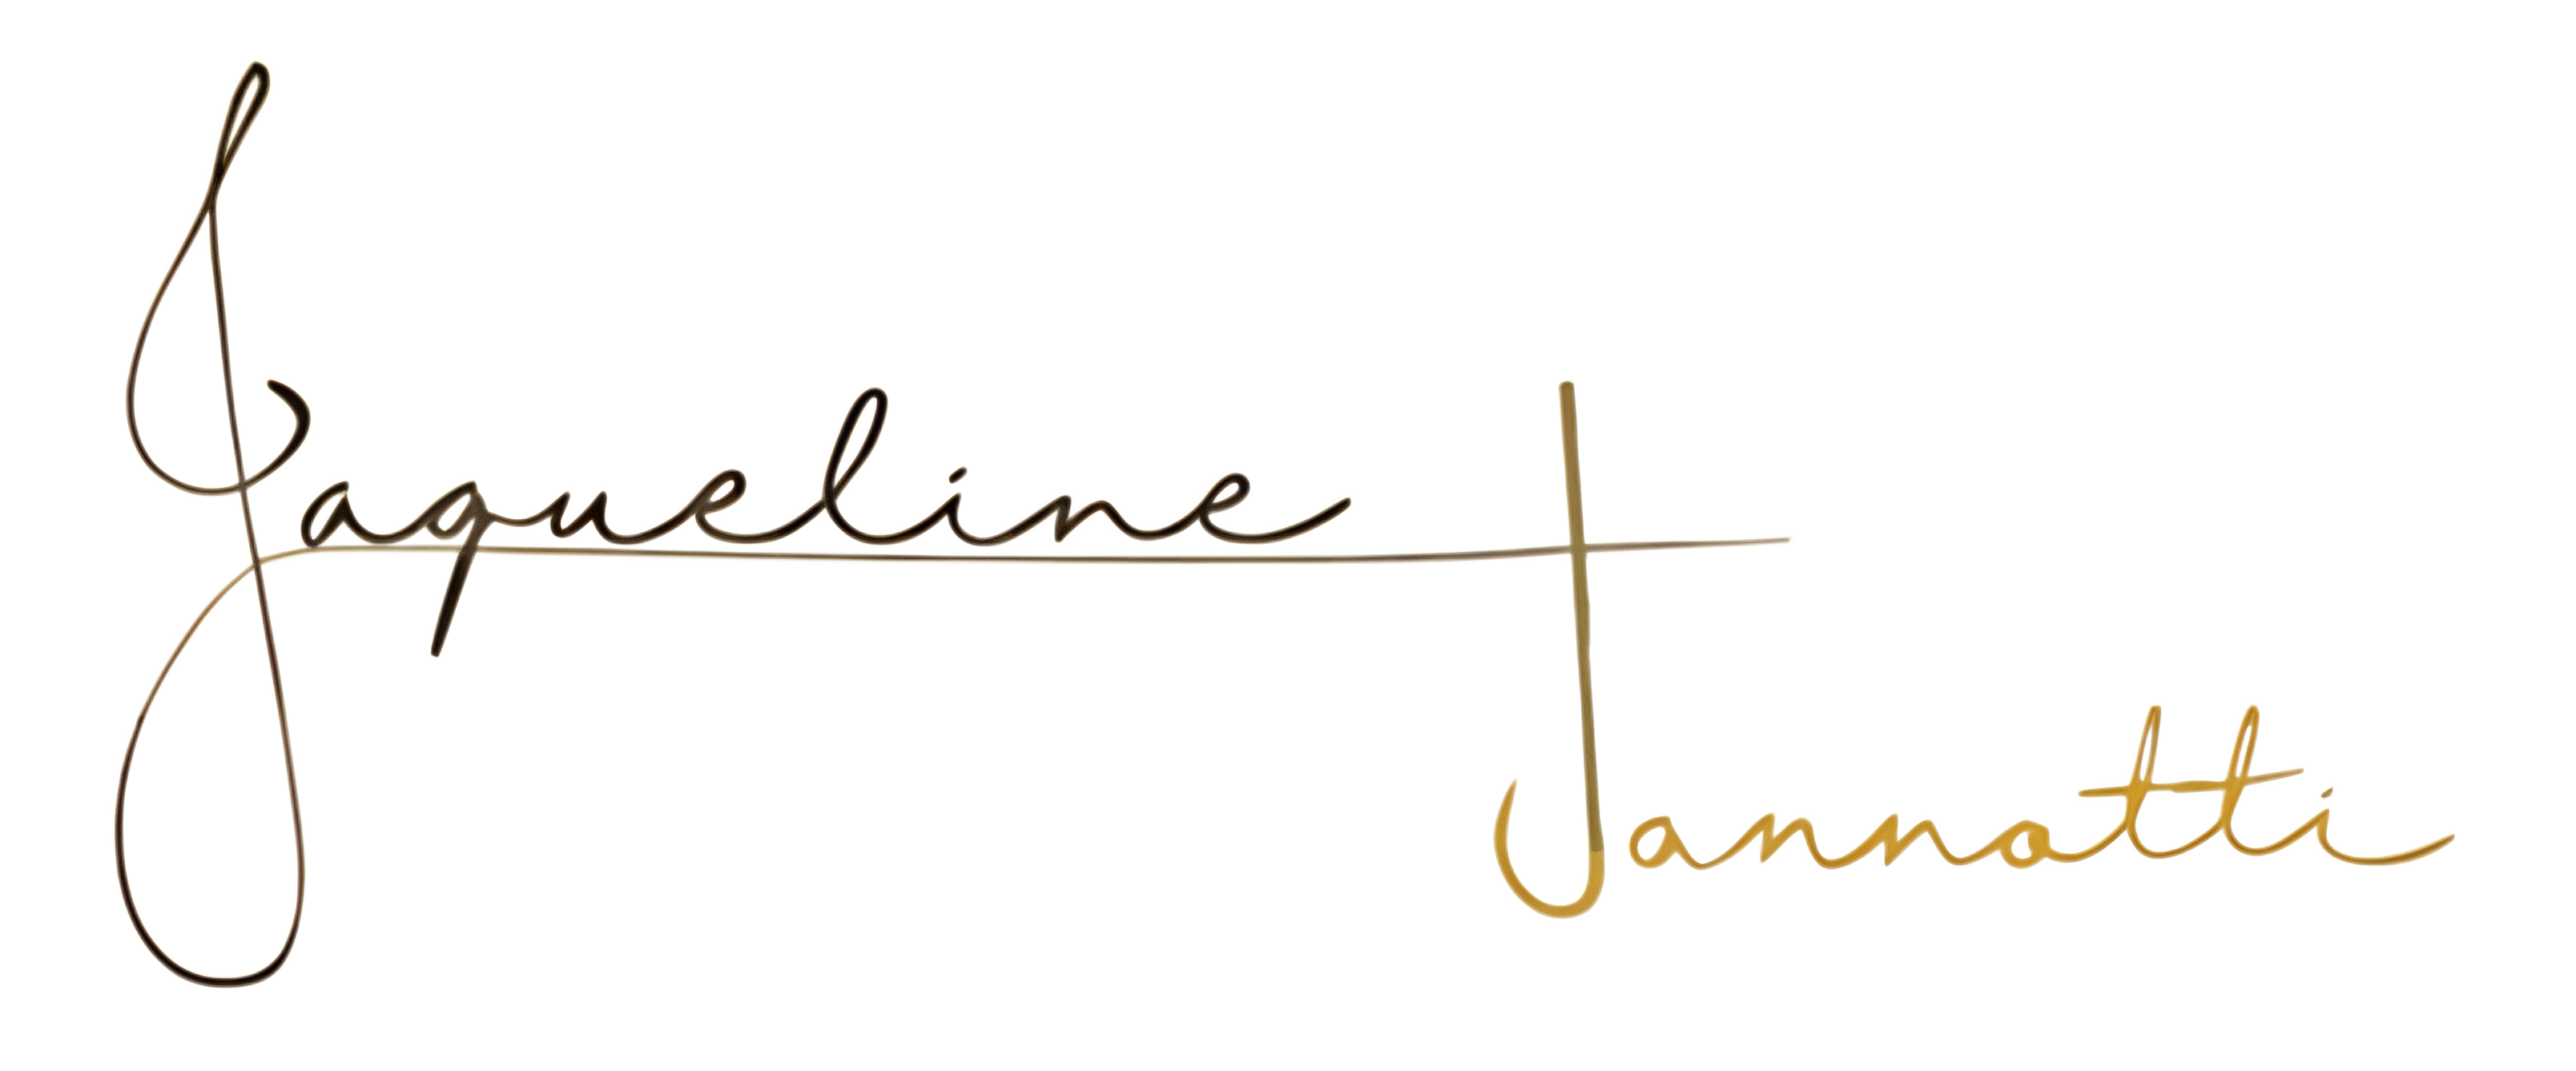 Jaqueline
Jannatti